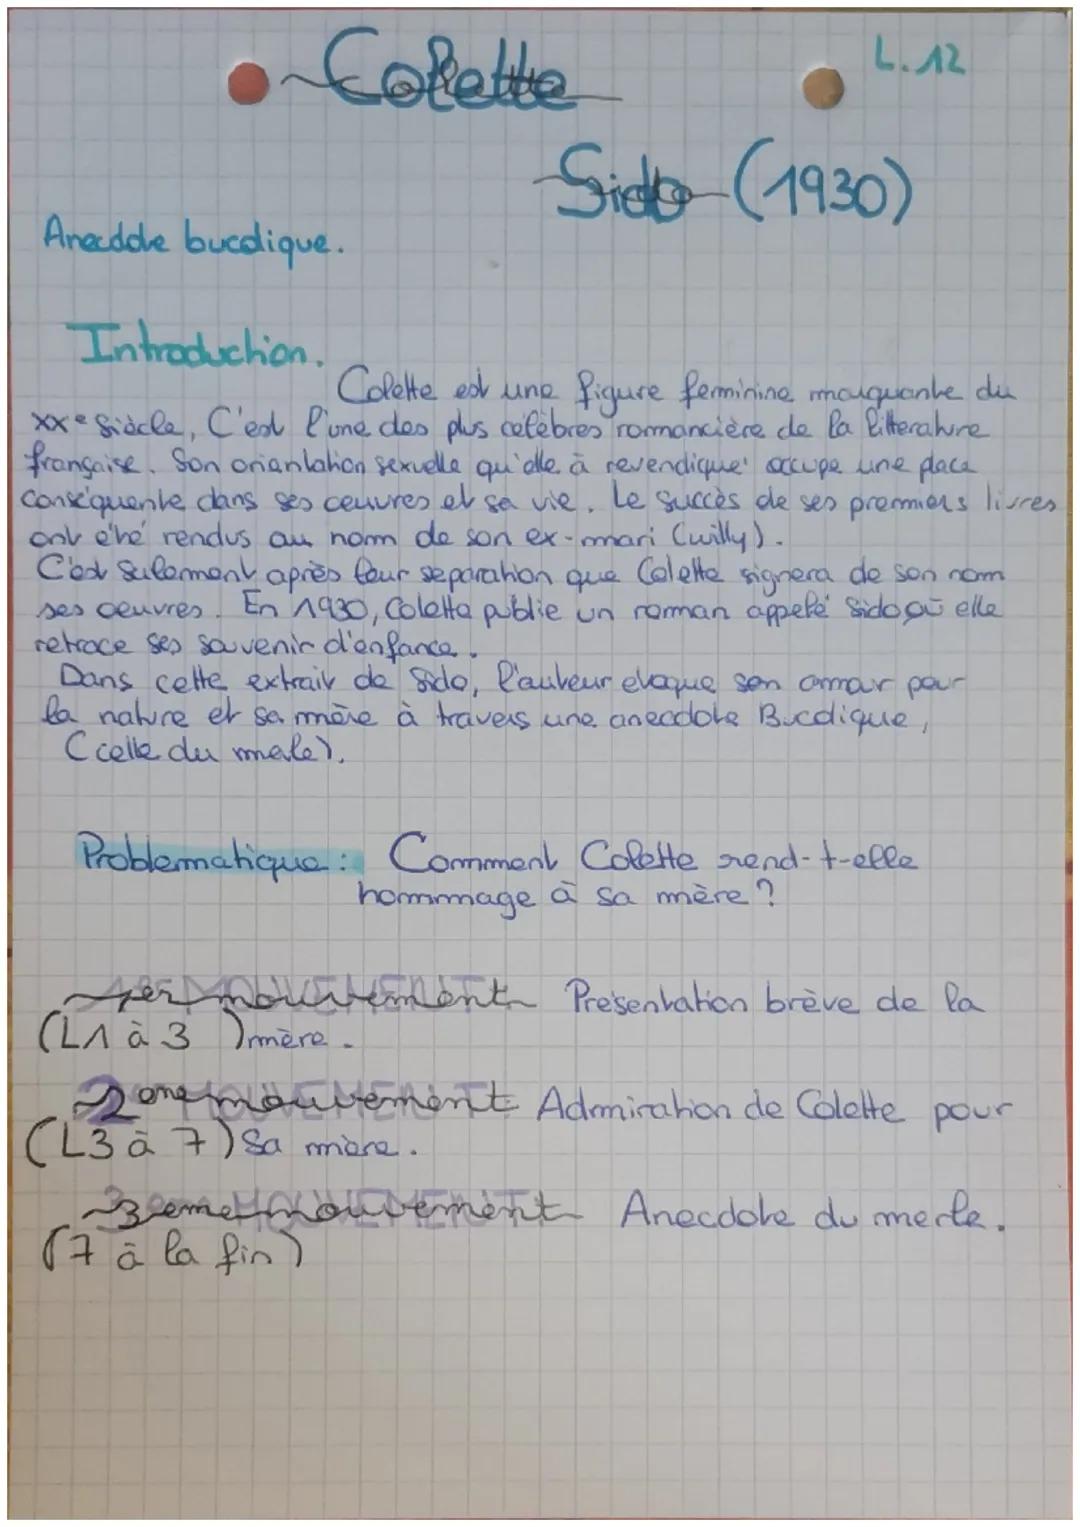 Colette
L.12
Sido (1930)
Anecdote bucolique.
Introduction.
Colette est une figure feminine marquante du
XXe siècle, C'est l'une des plus celèbres romancière de la litterature
française. Son orientation sexuelle qu'elle à revendiqué occupe une place
conséquente dans ses œuvres et sa vie. Le succès de ses premiers livres
ont été rendus au nom de son ex-mari (willy).
C'est sulement après leur separation que Colette signera de son nom
ses œuvres. En 1930, Colette publie un roman appelé Sido où elle
retrace ses souvenir d'enfance.
Dans cette extrait de Sido, l'auteur evoque son amour pour
la nature et sa mère à travers une anecdote Bucolique,
(celle du merle).
Problematique : Comment Colette rend-t-elle
hommage à sa mère ?
1er mouvement Présentation brève de la
(L1 à 3 ) mère.
2eme mouvement Admiration de Colette pour
(L3 à 7) sa mère.
3eme mouvement Anecdote du merle.
(7 à la fin)